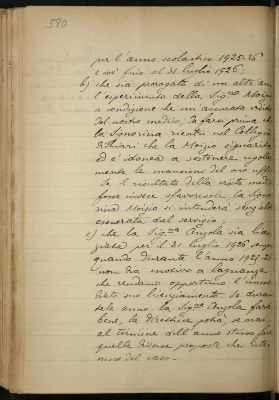 580
per l'anno scolastico 1925-26
e cioè fino al 31 luglio 1926;
b) che sia prorogato di un altro anno
l'esperimento della Sig.na Moizio
a condizione che un'accurata visita
del nostro medico, da farsi prima che
la Signorina rientri nel Collegio
dichiari che la Moizio è guarita
ed è idonea a sostenere regolar
mente le mansioni del suo uffi
Se il risultato della visita medica
fosse invece sfavorevole la Signo
rina Moizio si intenderà
esonerata dal servizio;
c) che la Sig.na Angola sia licen
ziata per il 31 luglio 1926
quando durante l'anno 1925-26
non dia motivo a lagnanze
che rendano opportuno l'imme
diato suo licenziamento. Se duran
tale anno la Sig.na Angola farà
bene, la direttrice potrà, se mai,
al termine dell'anno stesso fare
quelle diverse proposte che riter
rà del caso.